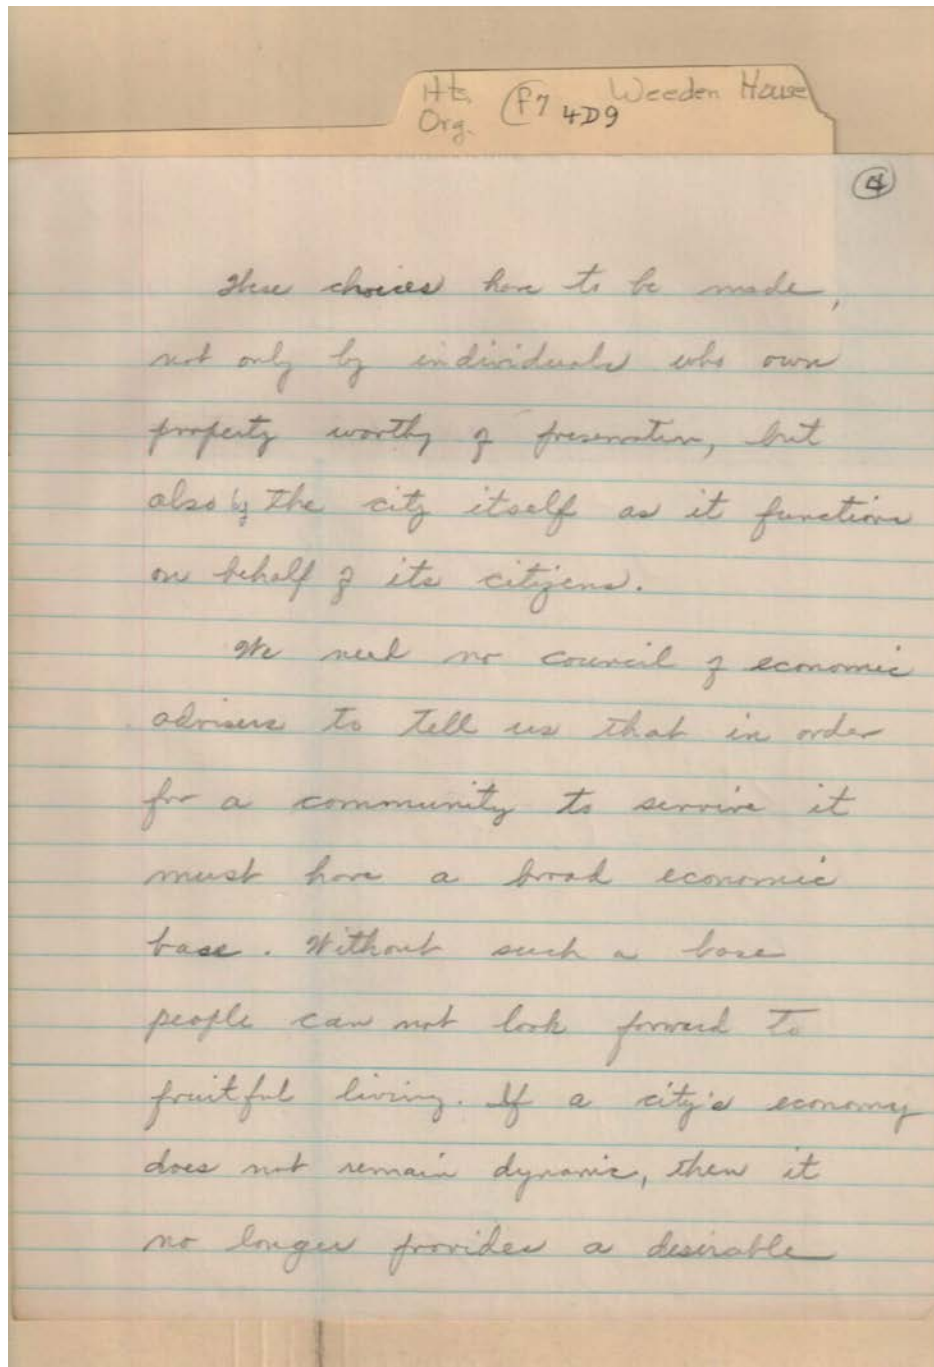 Hts, Org. (F7 4D9 Weeden House
4
These choices have to be made,
not only by individuals who own
property worthy of preservation, but
also by the city itself as it functions
on behalf of its citizens.
We need no council of economic
advisers to tell us that in order
for a community to survive it
must have a broad economic
base. Without such a base
people can not look forward to
fruitful living. If a city's economy
does not remain dynamic, then it
no longer provides a desirable